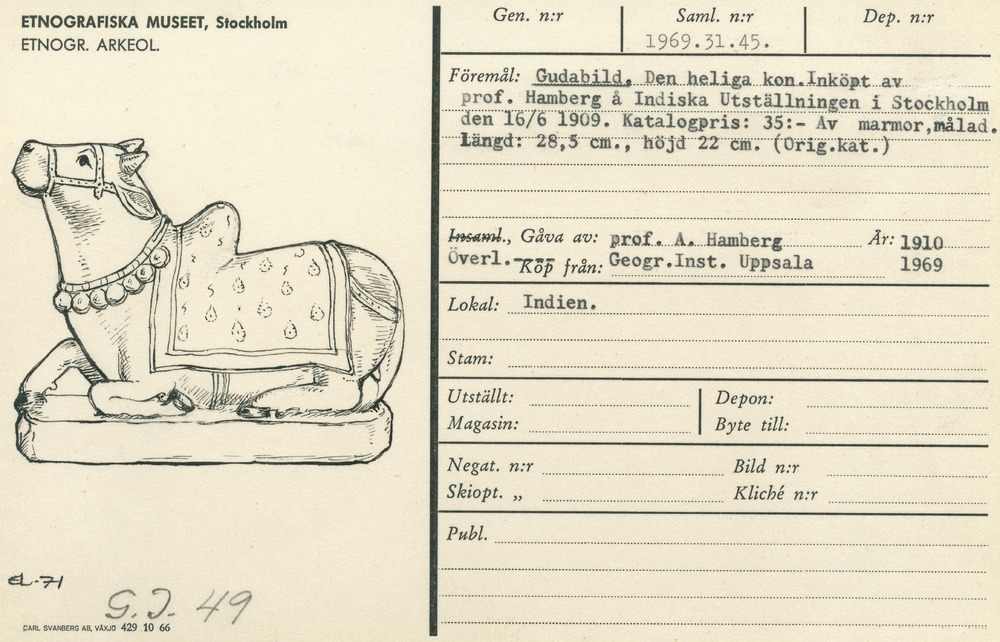 ETNOGRAFISKA MUSEET, Stockholm
ETNOGR. ARKEOL.
EL-71
G.I. 49
CARL SVANBERG AB, VÄXJÖ 429 10 66
Gen. n:r
Saml. n:r
Dep. n:r
1969.31.45.
Föremål: Gudabild. Den heliga kon.Inköpt av
prof. Hamberg å Indiska Utställningen i Stockholm
den 16/6 1909. Katalogpris: 35:- Av marmor,målad.
Längd: 28,5 cm., höjd 22 cm. (Orig.kat.)
Insaml., Gåva av: prof. A. Hamberg År: 1910
Överl.---- Köp från: Geogr.Inst. Uppsala 1969
Lokal: Indien.
Stam:
Utställt: Depon:
Magasin: Byte till:
Negat. n:r Bild n:r
Skiopt. „ Kliché n:r
Publ.